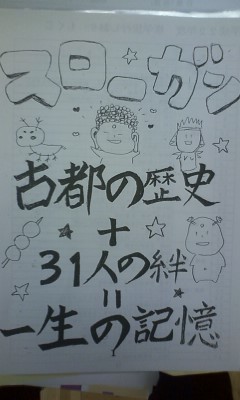 スローガン
古都の歴史
+
31人の絆
=
一生の記憶